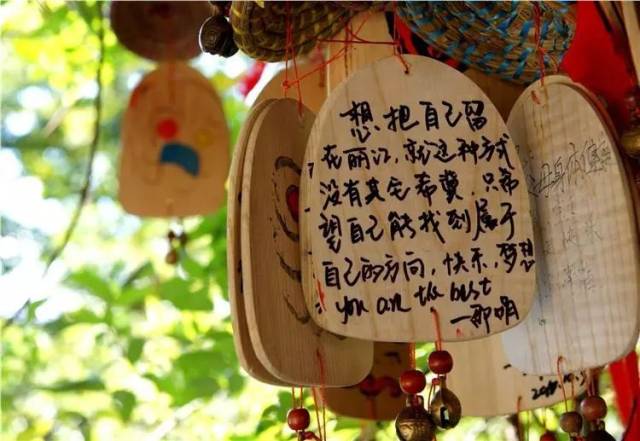 想把自己留
在丽江,就这种方式
没有其它希冀,只希
望自己能找到属于
自己的方向,快乐,梦想
you are the best
一那明
父母身体健